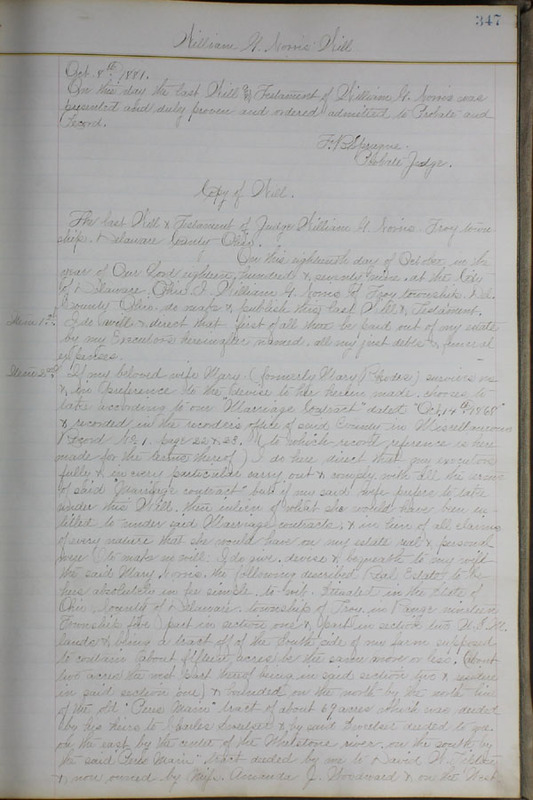 347
William G. Norris Will
Oct. 8th 1881.
On this day the last Will & Testament of William G. Norris was
presented and duly proven and ordered admitted to Probate and
Record.
F. B. Sprague
Probate Judge.
Copy of Will.
The last Will & Testament of Judge William G. Norris Troy town
ship. Delaware County Ohio.
On this eighteenth day of October in the
year of Our Lord eighteen hundred & seventy nine. at the City
of Delaware Ohio I William G. Norris of Troy township Del.
County Ohio, do make & publish this last Will & Testament.
Item 1st I do will & direct that first of all there be paid out of my estate
by my Executors hereinafter named, all my just debts & funeral
expenses.
Item 2nd If my beloved wife Mary (formerly Mary Rhodes) survives me
& in preference to the devise to her herein made chooses to
take according to our "Marriage Contract" dated "Oct. 14th 1868"
& recorded in the recorders office of said County in Miscellaneous
Record No. 1. page 22 & 23. (to which record reference is here
made for the terms thereof) I do here direct that my executors
fully & in every particular carry out & comply with all the terms
of said "Marriage contract" but if my said wife prefers to take
under this Will. then in lieu of what she would have been en
titled to under said Marriage contract, & in lieu of all claims
of every nature that she would have on my estate real & personal
were I to make no will: I do give, devise & bequeath to my wife
the said Mary Norris, the following described Real Estate to
hers absolutely in fee simple, to wit. Situated in the State of
Ohio, County of Delaware township of Troy, in Range nineteen
Township five part in section one & part in section two U.S.M.
lands & being a tract off of the South side of my farm supposed
to contain about fifteen acres be the same more or less. (about
two acres the most part thereof being in said section two &
in said section one) & bounded on the north by the north line
of the old " Main" tract of about 69 acres which was deeded
by his heirs to Charles & by said deeded to me.
on the east by the center of the Whetstone river, on the south by
the said " Main" tract deeded by me to David
& now owned by Mrs. Amanda J. Woodward & on the West